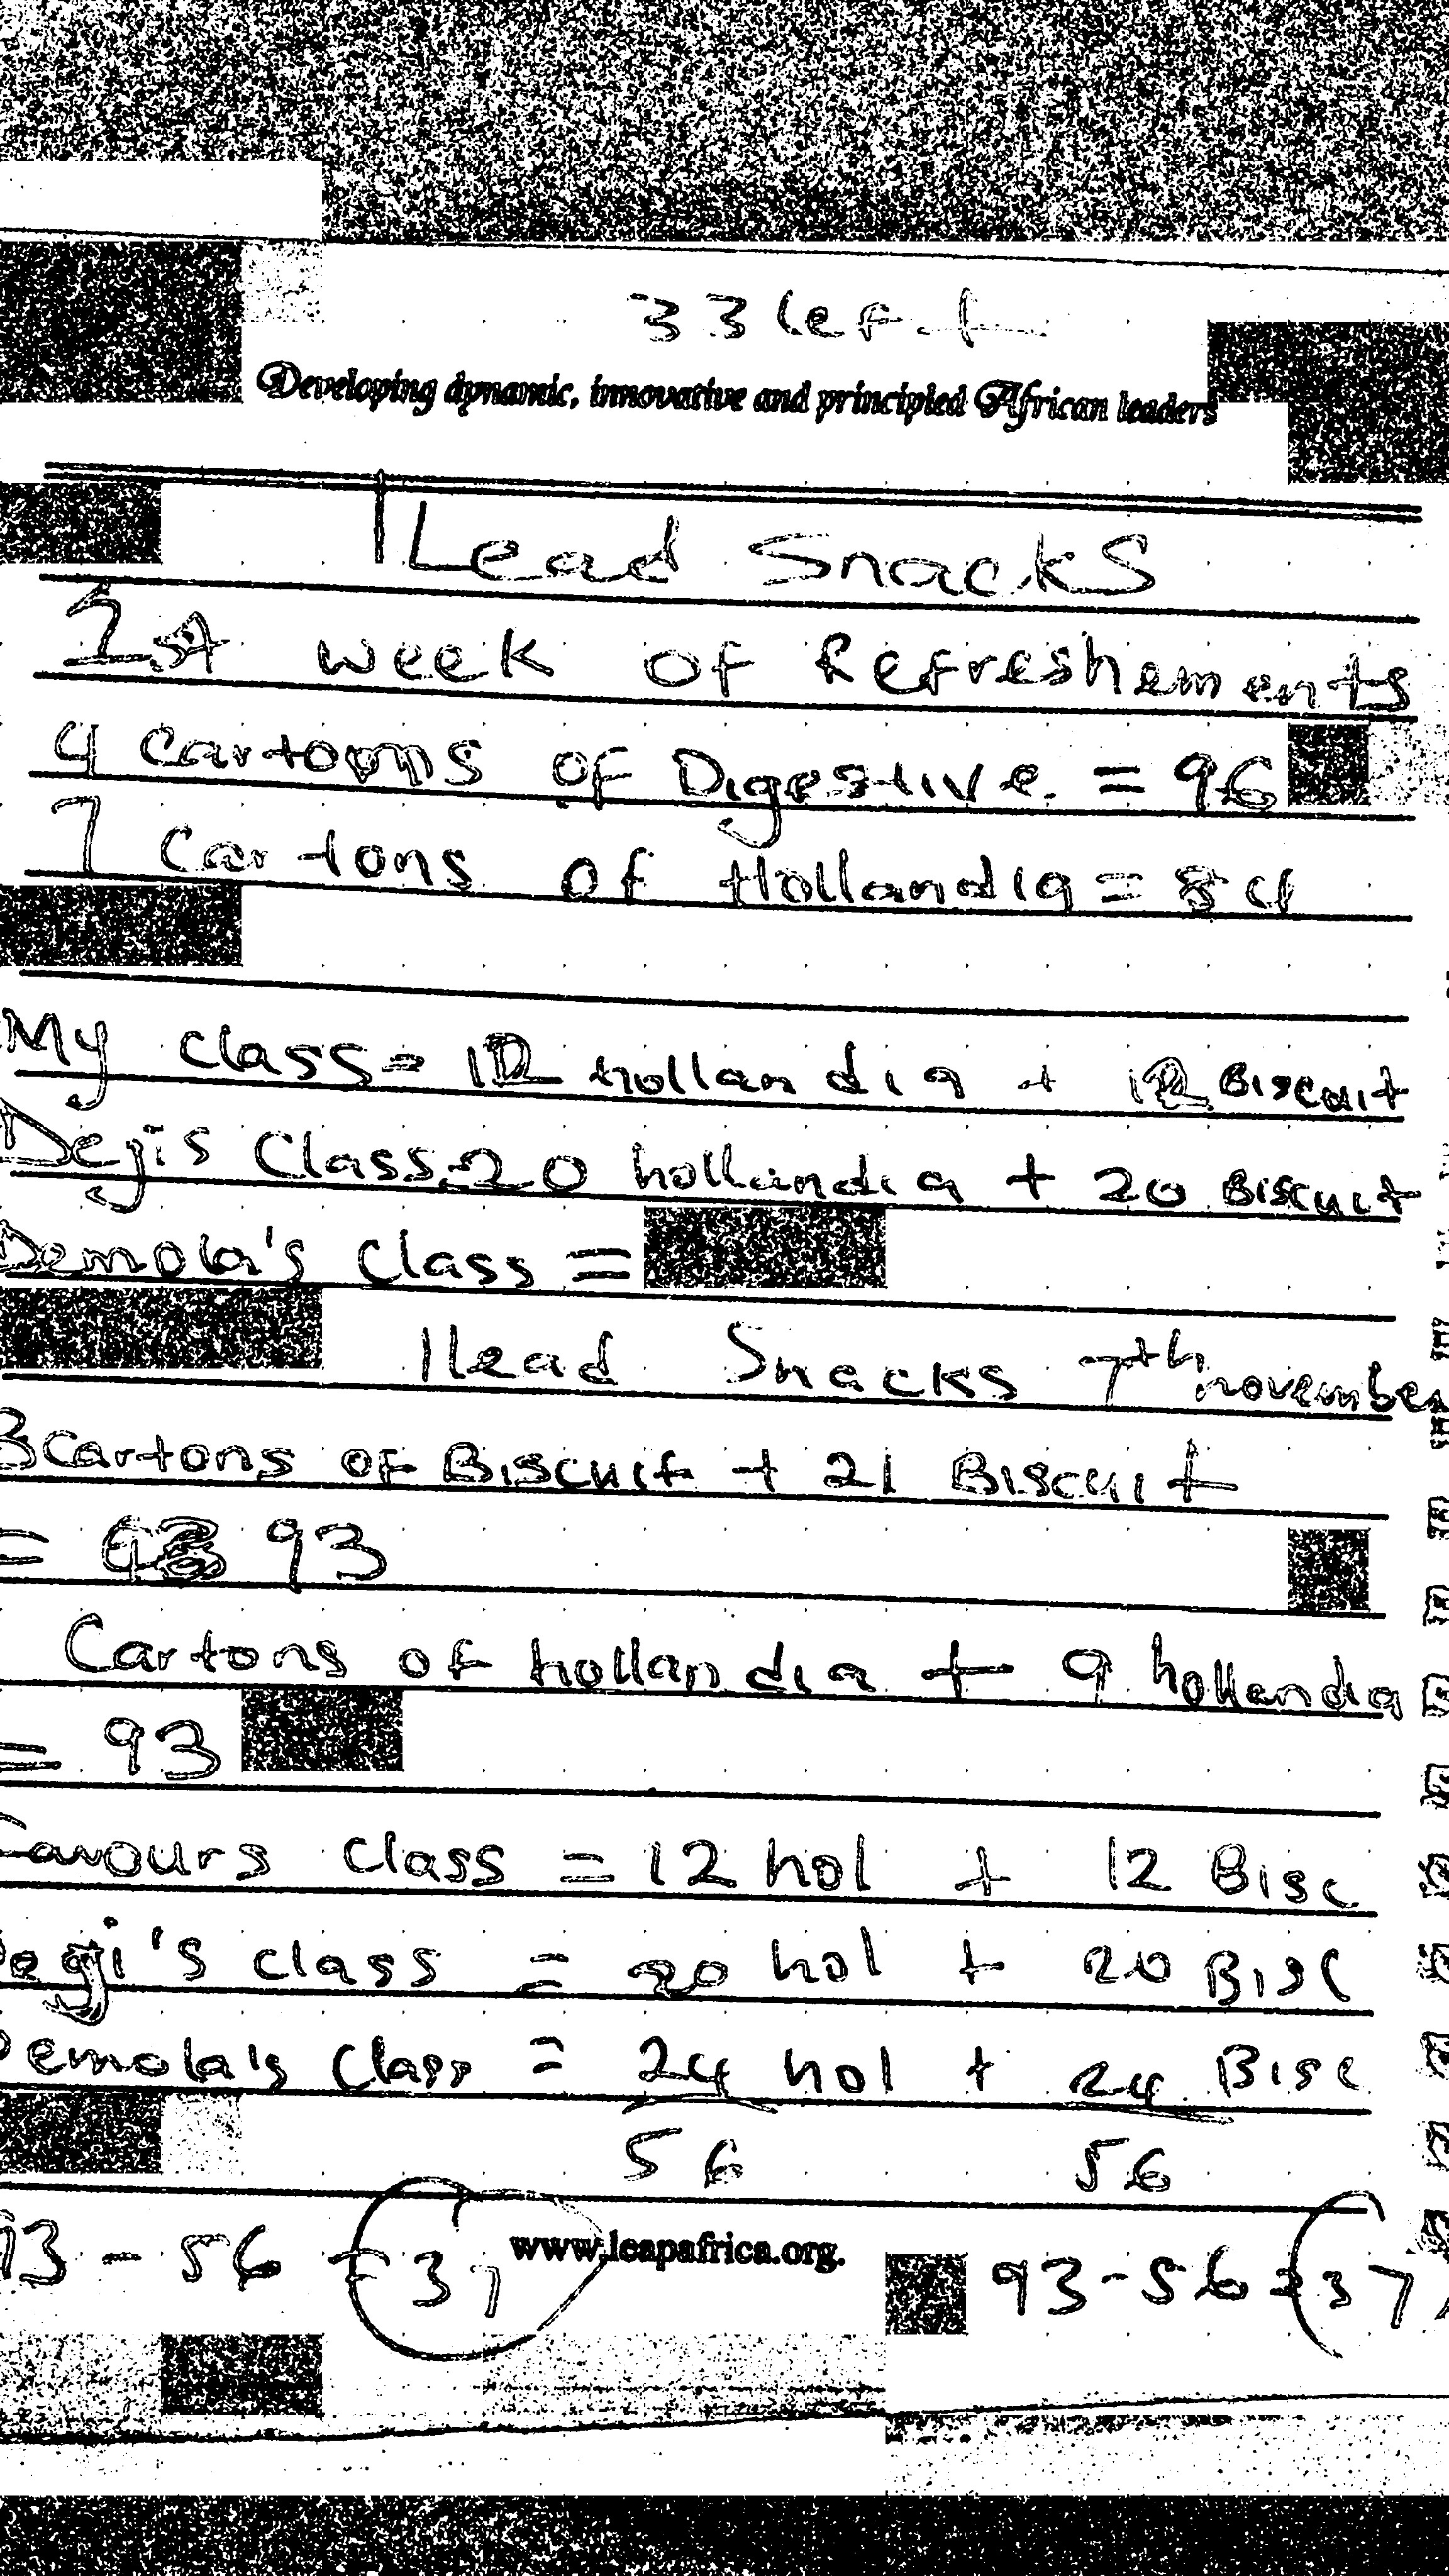 33 left
Developing dynamic, innovative and principled African leaders
ILead Snacks
1st week of Refreshements
4 cartoons of Digestive = 96
7 Cartons of Hollandia = 84
My class = 12 hollandia + 12 Biscuit
Dejis Class = 20 hollandia + 20 Biscuit
Demola's Class =
Ilead Snacks 7th november
3 Cartons of Biscuit + 21 Biscuit
= 93
Cartons of hollandia + 9 hollandia
= 93
Favours class = 12 hol + 12 Bisc
egi's class = 20 hol + 20 Bisc
Demola's Class = 24 hol + 24 Bisc
56 56
93 - 56 = 37 93 - 56 = 37
www.leapafrica.org.